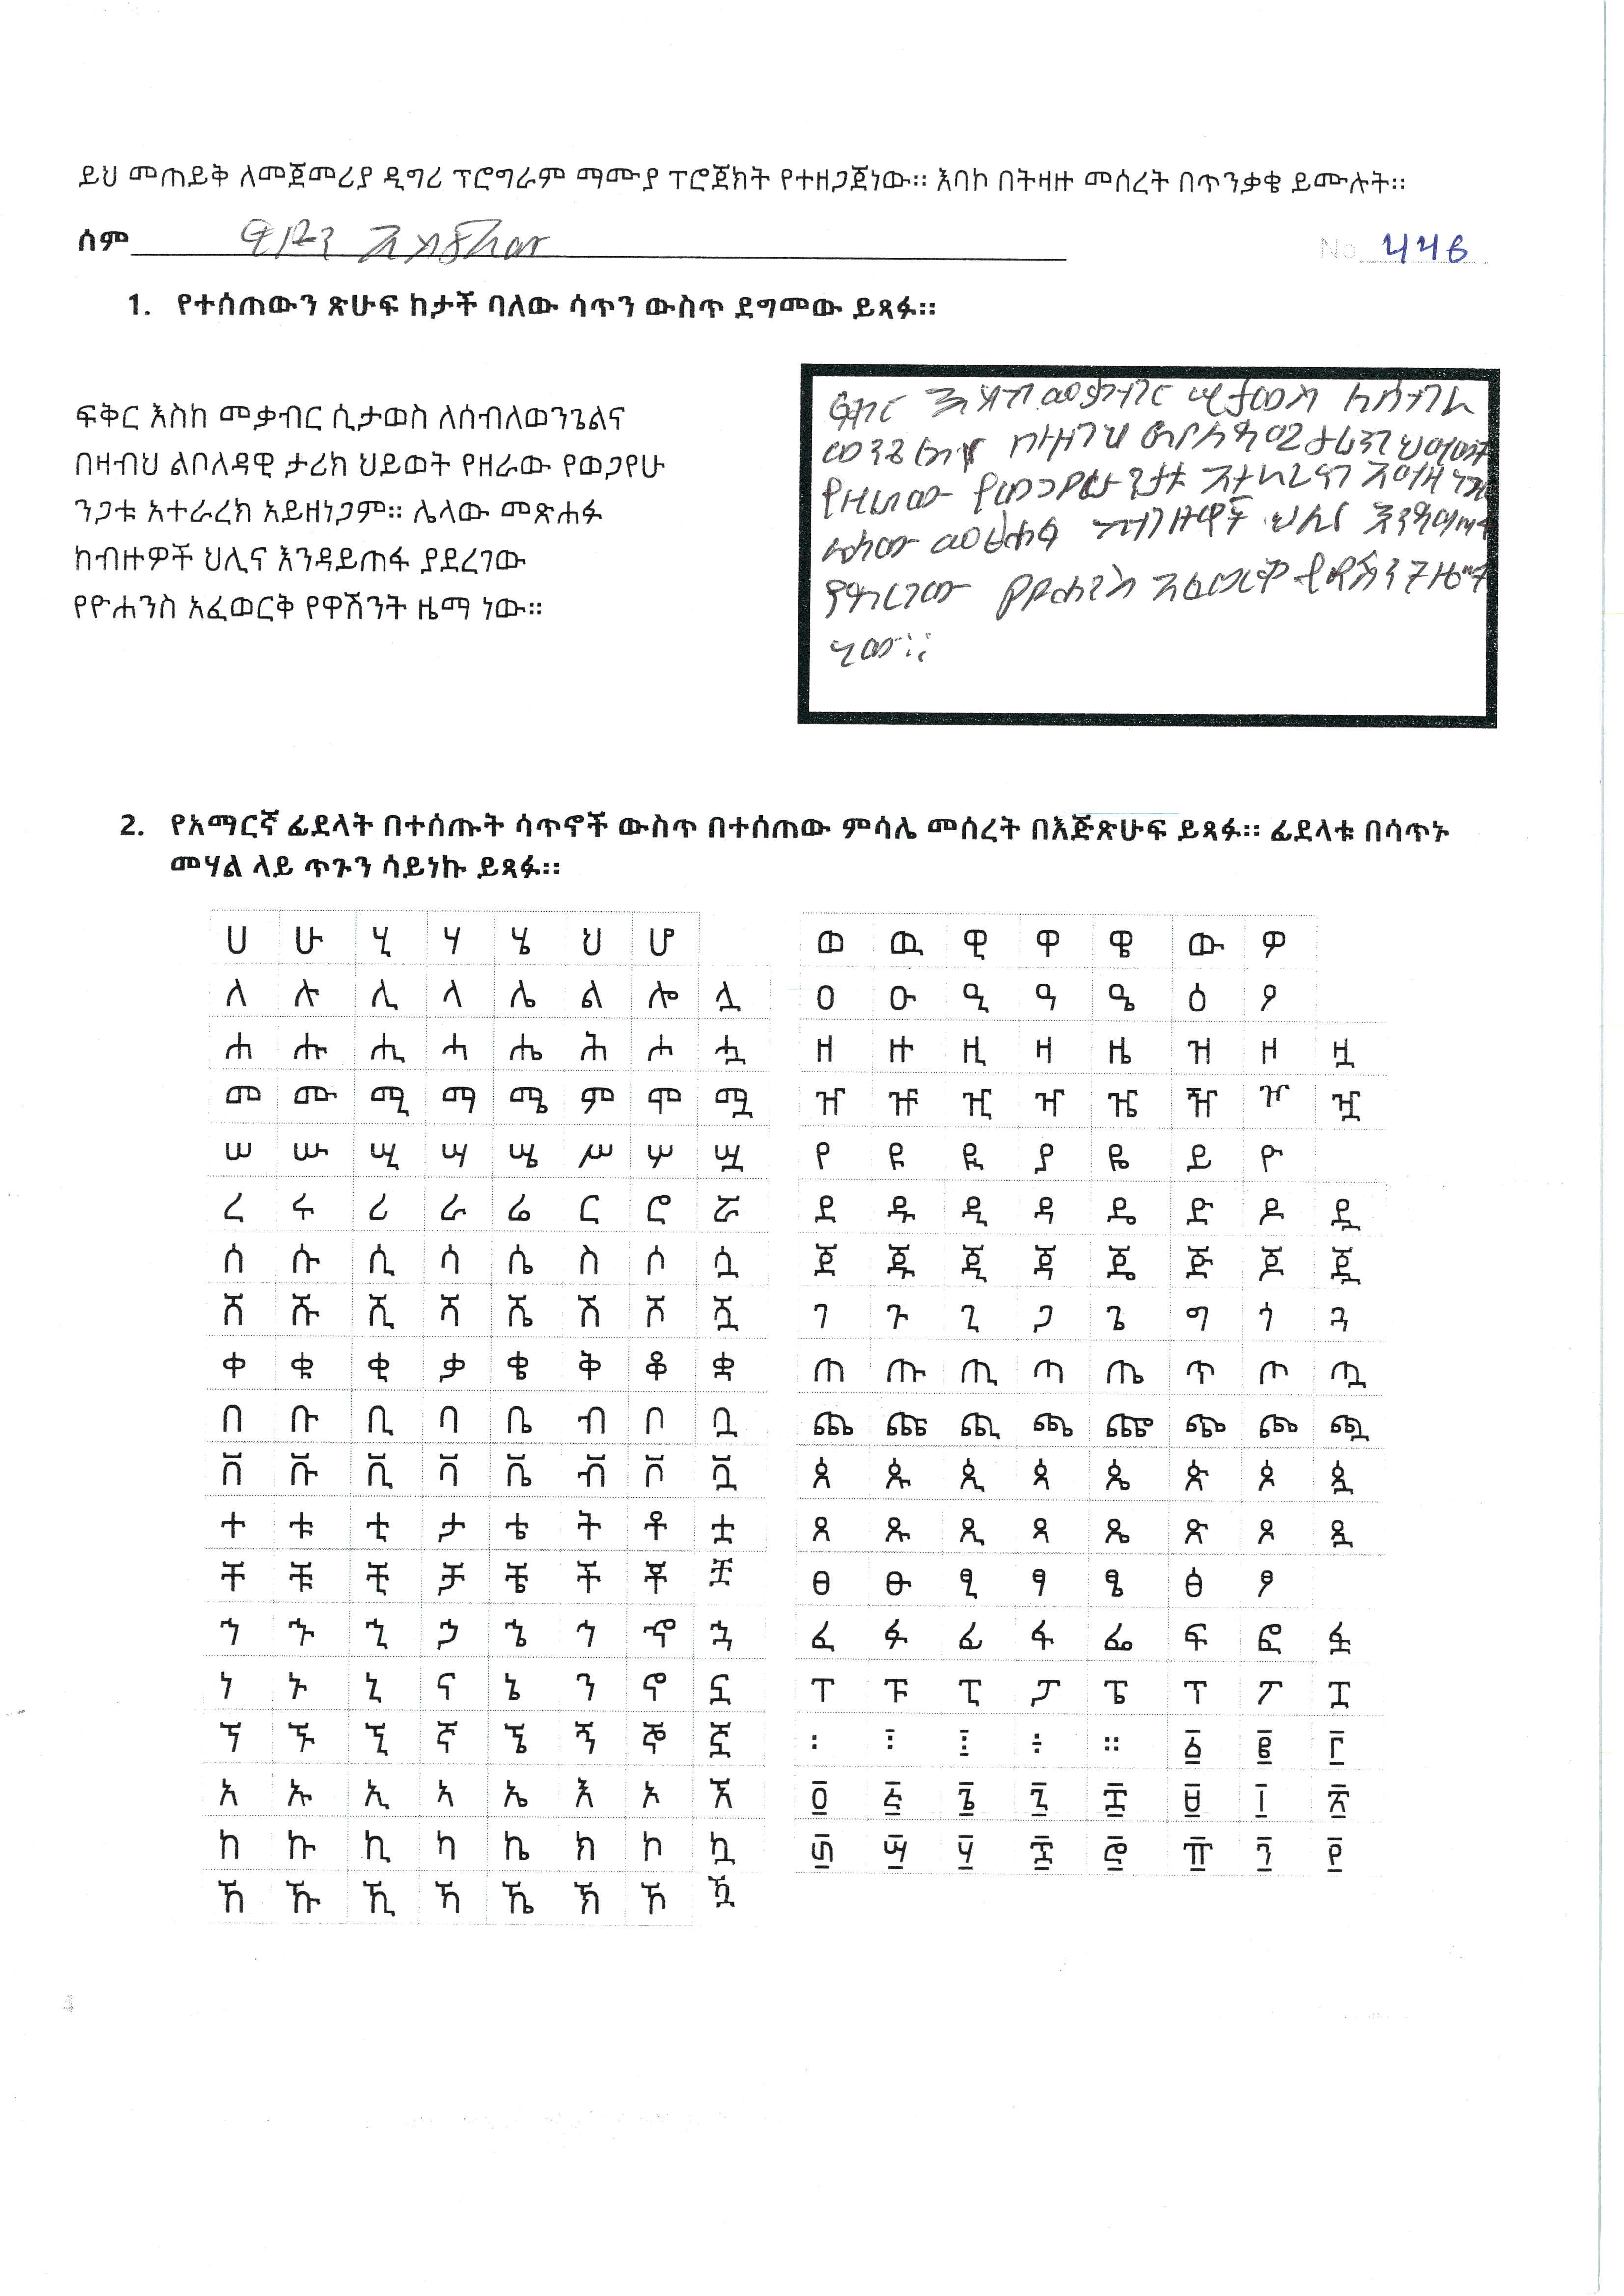 ይህ መጠይቅ ለመጀመሪያ ዲግሪ ፕሮግራም ማሙያ ፕሮጀክት የተዘጋጀነው። እባኮ በትዛዙ መሰረት በጥንቃቄ ይሙሉት።
ሰም
No 446
1. የተሰጠውን ጽሁፍ ከታች ባለው ሳጥን ውስጥ ደግመው ይጻፉ።
ፍቅር እስከ መቃብር ሲታወስ ለሰብለወንጌልና
በዛብህ ልቦለዳዊ ታሪክ ህይወት የዘራው የወጋየሁ
ንጋቱ አተራረክ አይዘነጋም። ሌላው መጽሐፉ
ከብዙዎች ህሊና እንዳይጠፋ ያደረገው
የዮሐንስ አፈወርቅ የዋሽንት ዜማ ነው።
ፍቅር እስከ መቃብር ሲታወስ ለሰብለ
ወንጌልና በዛብህ ልቦለዳዊ ታሪክ ህይወት
የዘራው የወጋየሁ ንጋቱ አተራረክ
ሌላው መጽሐፉ ከብዙዎች ህሊና እንዳይጠፋ
ያደረገው የዮሐንስ አፈወርቅ የዋሽንት ዜማ
ነው።
2. የአማርኛ ፊደላት በተሰጡት ሳጥኖች ውስጥ በተሰጠው ምሳሌ መሰረት በእጅጽሁፍ ይጻፉ። ፊደላቱ በሳጥኑ
መሃል ላይ ጥጉን ሳይነኩ ይጻፉ።
ሀ ሁ ሂ ሃ ሄ ህ ሆ
ለ ሉ ሊ ላ ሌ ል ሎ ሏ
ሐ ሑ ሒ ሓ ሔ ሕ ሖ ሗ
መ ሙ ሚ ማ ሜ ም ሞ ሟ
ሠ ሡ ሢ ሣ ሤ ሥ ሦ ሧ
ረ ሩ ሪ ራ ሬ ር ሮ ሯ
ሰ ሱ ሲ ሳ ሴ ስ ሶ ሷ
ሸ ሹ ሺ ሻ ሼ ሽ ሾ ሿ
ቀ ቁ ቂ ቃ ቄ ቅ ቆ ቋ
በ ቡ ቢ ባ ቤ ብ ቦ ቧ
ቨ ቩ ቪ ቫ ቬ ቭ ቮ ቯ
ተ ቱ ቲ ታ ቴ ት ቶ ቷ
ቸ ቹ ቺ ቻ ቼ ች ቾ ቿ
ኀ ኁ ኂ ኃ ኄ ኅ ኆ ኋ
ነ ኑ ኒ ና ኔ ን ኖ ኗ
ኘ ኙ ኚ ኛ ኜ ኝ ኞ ኟ
አ ኡ ኢ ኣ ኤ እ ኦ ኧ
ከ ኩ ኪ ካ ኬ ክ ኮ ኳ
ኸ ኹ ኺ ኻ ኼ ኽ ኾ ዃ
ወ ዉ ዊ ዋ ዌ ው ዎ
ዐ ዑ ዒ ዓ ዔ ዕ ዖ
ዘ ዙ ዚ ዛ ዜ ዝ ዞ ዟ
ዠ ዡ ዢ ዣ ዤ ዥ ዦ ዧ
የ ዩ ዪ ያ ዬ ይ ዮ
ደ ዱ ዲ ዳ ዴ ድ ዶ ዷ
ጀ ጁ ጂ ጃ ጄ ጅ ጆ ጇ
ገ ጉ ጊ ጋ ጌ ግ ጎ ጓ
ጠ ጡ ጢ ጣ ጤ ጥ ጦ ጧ
ጨ ጩ ጪ ጫ ጬ ጭ ጮ ጯ
ጰ ጱ ጲ ጳ ጴ ጵ ጶ ጷ
ጸ ጹ ጺ ጻ ጼ ጽ ጾ ጿ
ፀ ፁ ፂ ፃ ፄ ፅ ፆ
ፈ ፉ ፊ ፋ ፌ ፍ ፎ ፏ
ፐ ፑ ፒ ፓ ፔ ፕ ፖ ፗ
፡ ፧ ፤ ፥ ። ፩ ፪ ፫
፬ ፭ ፮ ፯ ፰ ፱ ፲ ፳
፴ ፵ ፶ ፷ ፸ ፹ ፺ ፻